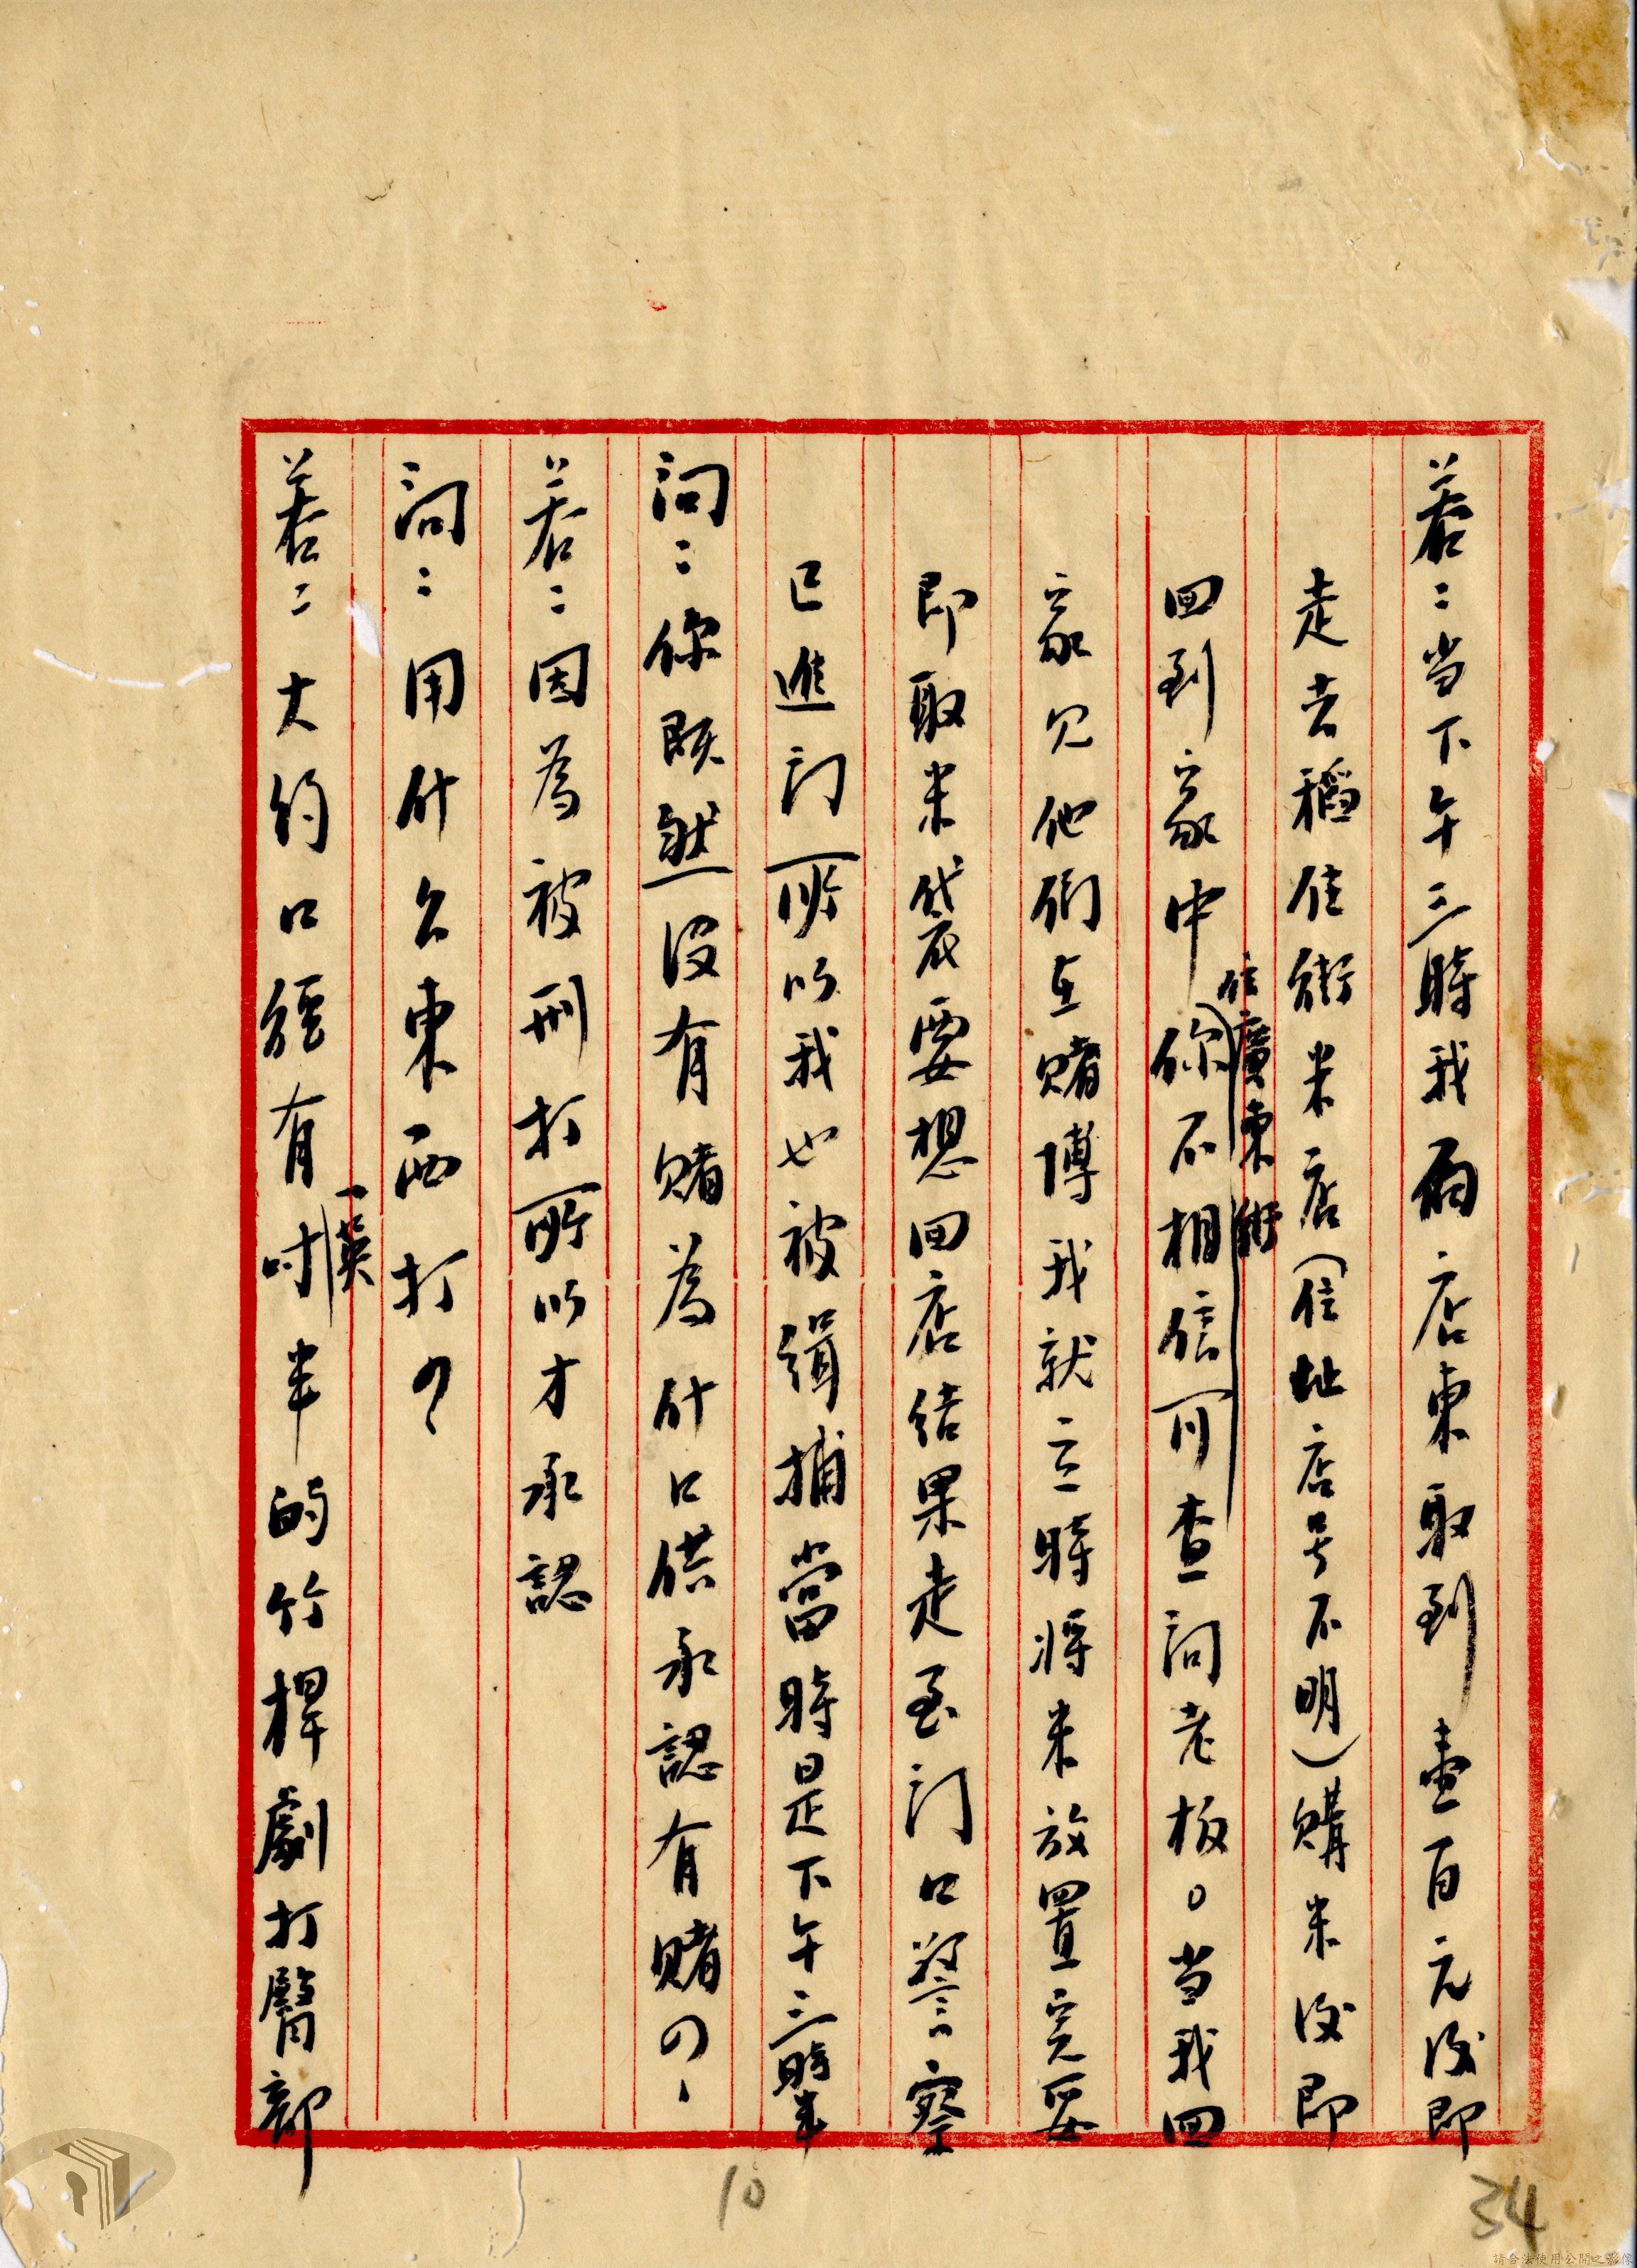 答：当下午三時我向店東取到壹百元後即
走去稻住街米店（住址店号不明）購米後即
回到家中（住廣東街）你不相信可查問老板。当我回
家见他们在赌博我就立時将米放置完妥
即取米袋要想回店结果走至门口警察
已進门所以我也被缉捕當時是下午三時半
问：你既然没有赌為什口供承認有赌？
答：因為被刑打所以才承認
问：用什么東西打？
答：大约口径有一英吋半的竹桿劇打臀部
10
34
請合法使用公開之影像